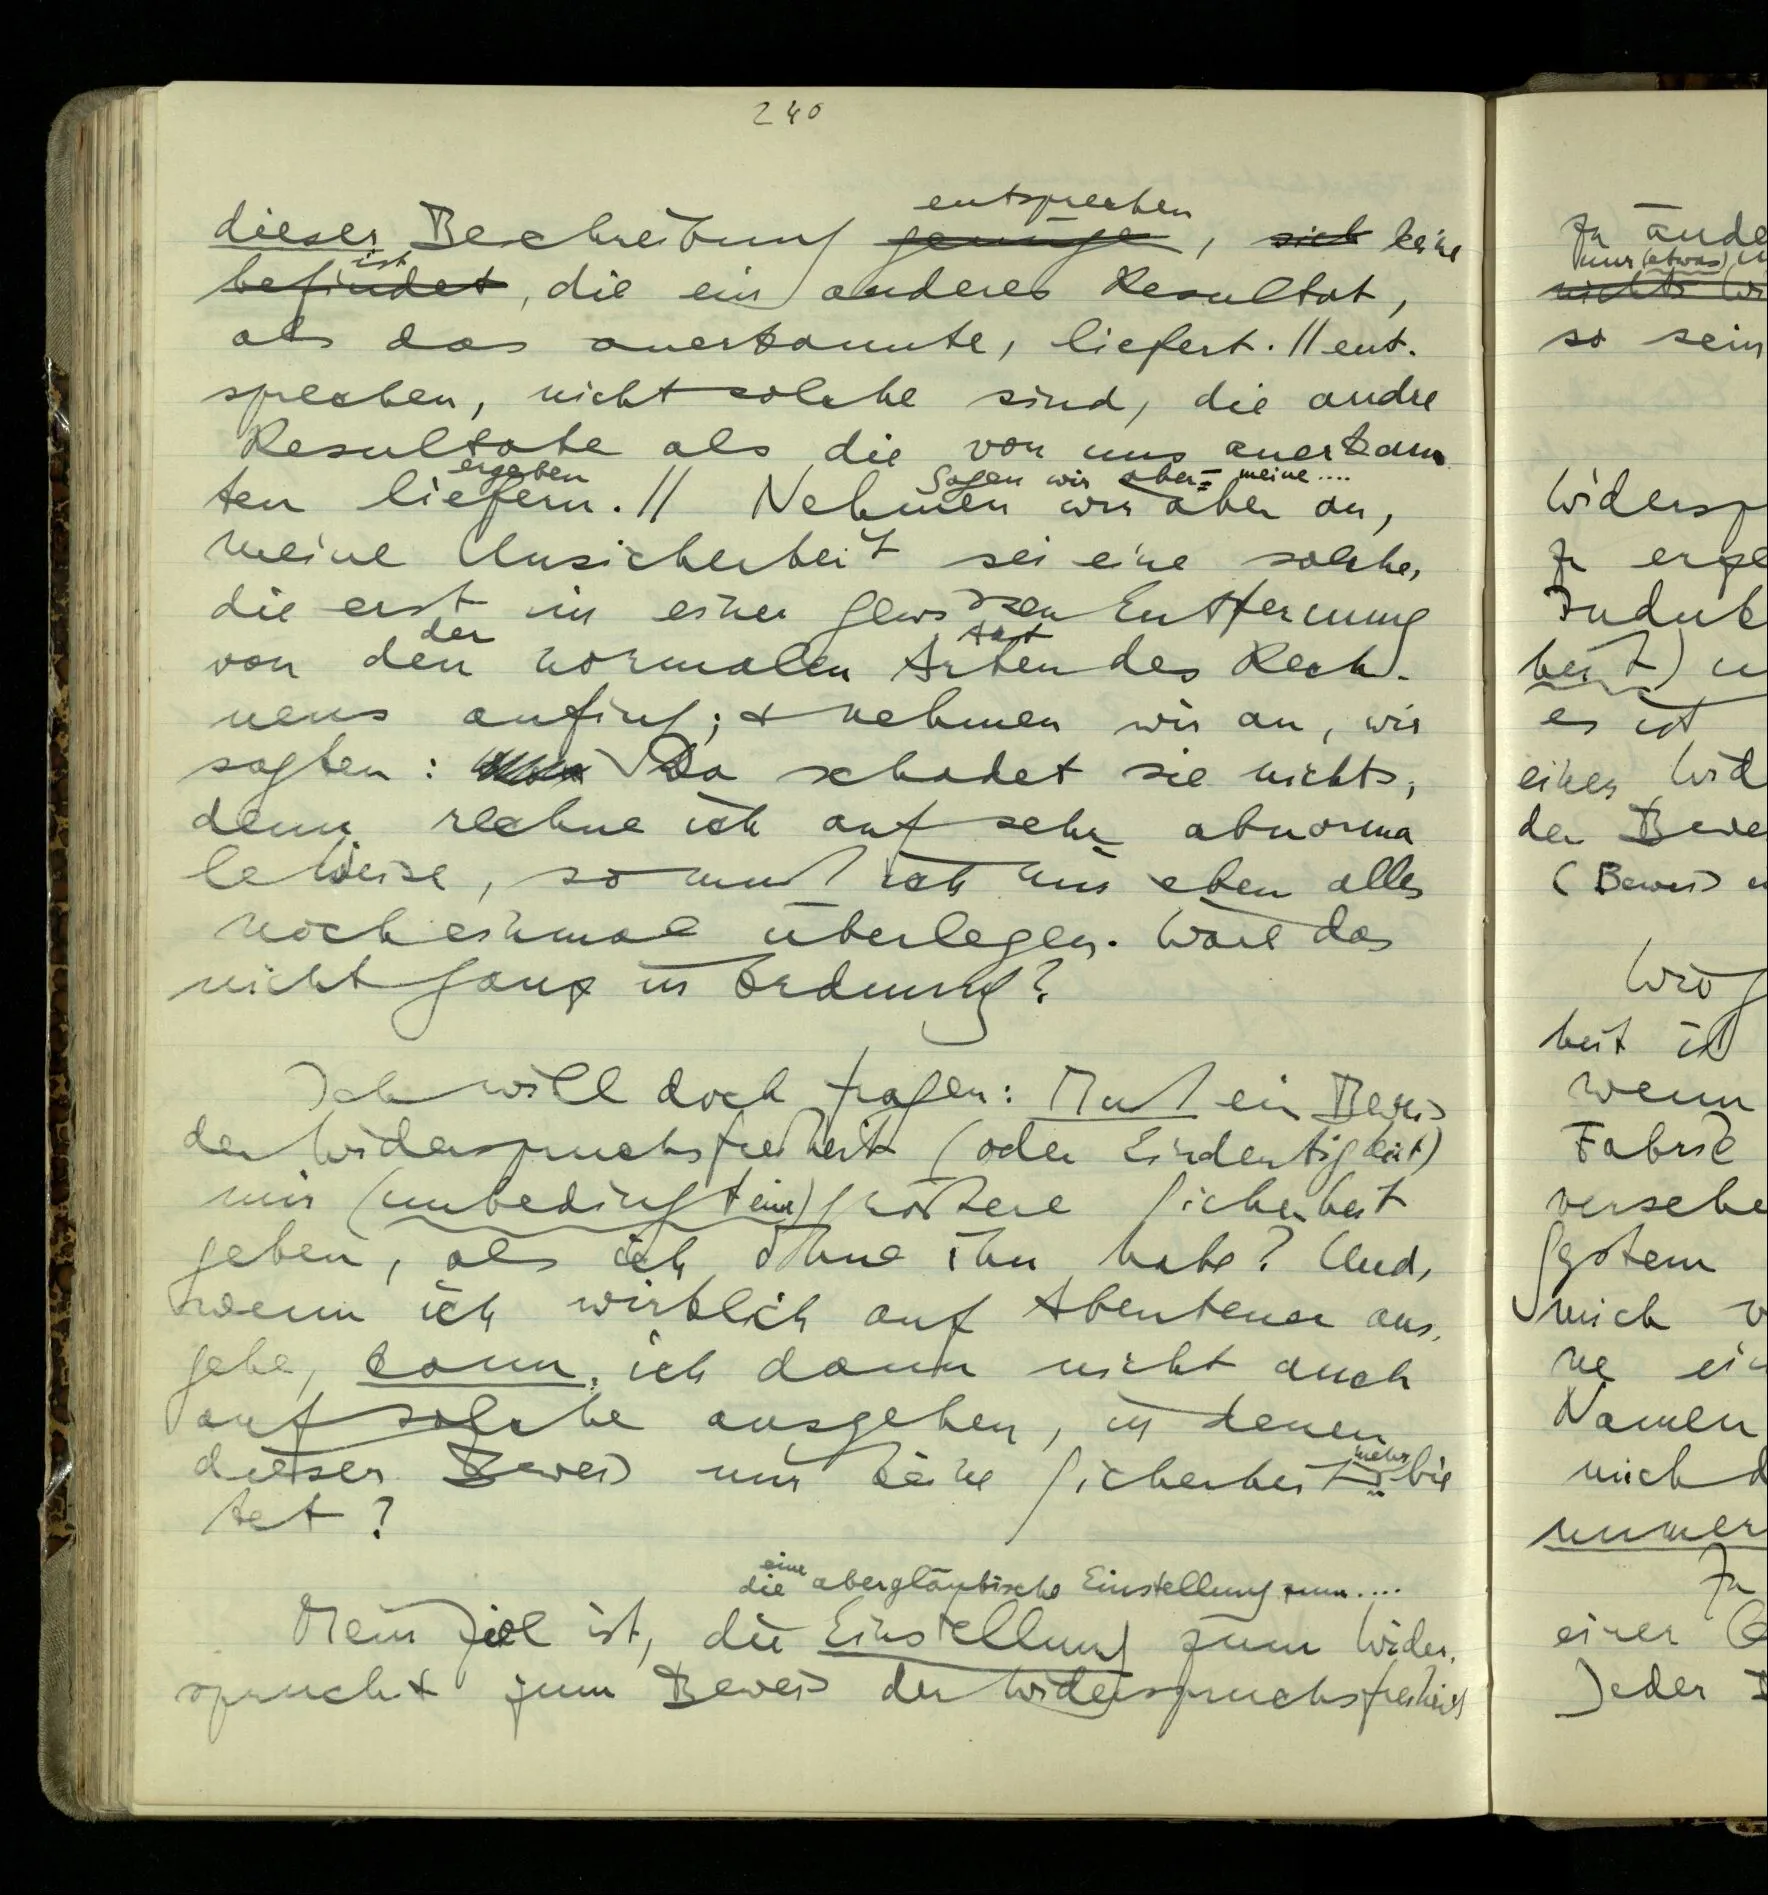 240
entsprechen
dieser Beschreibung genüge, sich keine
ist
befindet, die ein anderes Resultat,
als das anerkannte, liefert. // ent-
sprechen, nicht solche sind, die andre
Resultate als die von uns anerkann
ergeben Sagen wir aber = meine ....
ten liefern. // Nehmen wir aber an,
meine Unsicherheit sei eine solche,
die erst in einer gewissen Entfernung
der Art
von den normalen Arten des Rech-
nens anfing; & nehmen wir an, wir
sagten: Da schadet sie nichts;
denn rechne ich auf sehr abnorma
le Weise, so muß ich mir eben alles
noch einmal überlegen. Wäre das
nicht ganz in Ordnung?
Ich will doch fragen: Muß ein Beweis
der Widerspruchsfreiheit (oder Eindeutigkeit)
mir (unbedingt eine) größere Sicherheit
geben, als ich ohne ihn habe? Und,
wenn ich wirklich auf Abenteuer aus-
gehe, kann ich dann nicht auch
auf solche ausgehen, in denen
mehr
dieser Beweis mir keine Sicherheit bie
tet?
eine
die abergläubische Einstellung zum ....
Mein Ziel ist, die Einstellung zum Wider-
spruch & zum Beweis der Widerspruchsfreiheit
zu ände
nur (etwas)
nichts
so sein
Widersp
zu erge
heit)
es ist
einen Wid
der Bewe
(Beweis
heit ist
wenn
Fabrik
versehe
System
mich v
ne ein
Namen
mich d
immer
Zu
einer
Jeder